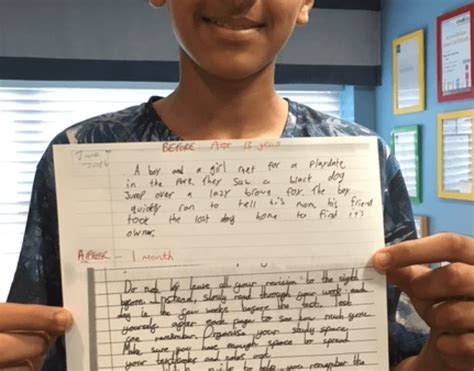 June
BEFORE AGE 13 years
A boy and a girl met for a playdate
in the park. they saw a black dog
Jump over a lazy brown fox. The boy
quickly ran to tell his mom, his friend
took the lost dog home to find it's
owner.
AFTER - 1 month
Do not leave all your revision to the night
before. Instead, slowly read through your work
day in the few weeks before the test. Test
yourself after each page to see how much you
can remember. Organise your study space.
Make sure you have enough space to spread
your textbooks and notes out.
to help you remember the